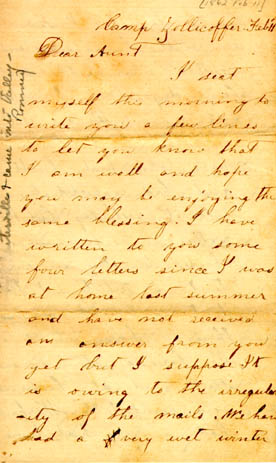 [1862 Feb 11]
Camp Zollicoffer Feb 11
Dear Aunt
I seat
myself this morning to
write you a few lines
to let you know that
I am well and hope
you may be enjoying the
same blessing. I have
written to you some
four letters since I was
at home last summer
and have not received
an answer from you
yet but I suppose It
is owing to the irregular
-ity of the mails. We have
had a very wet winter
& came into Valley -
Romney